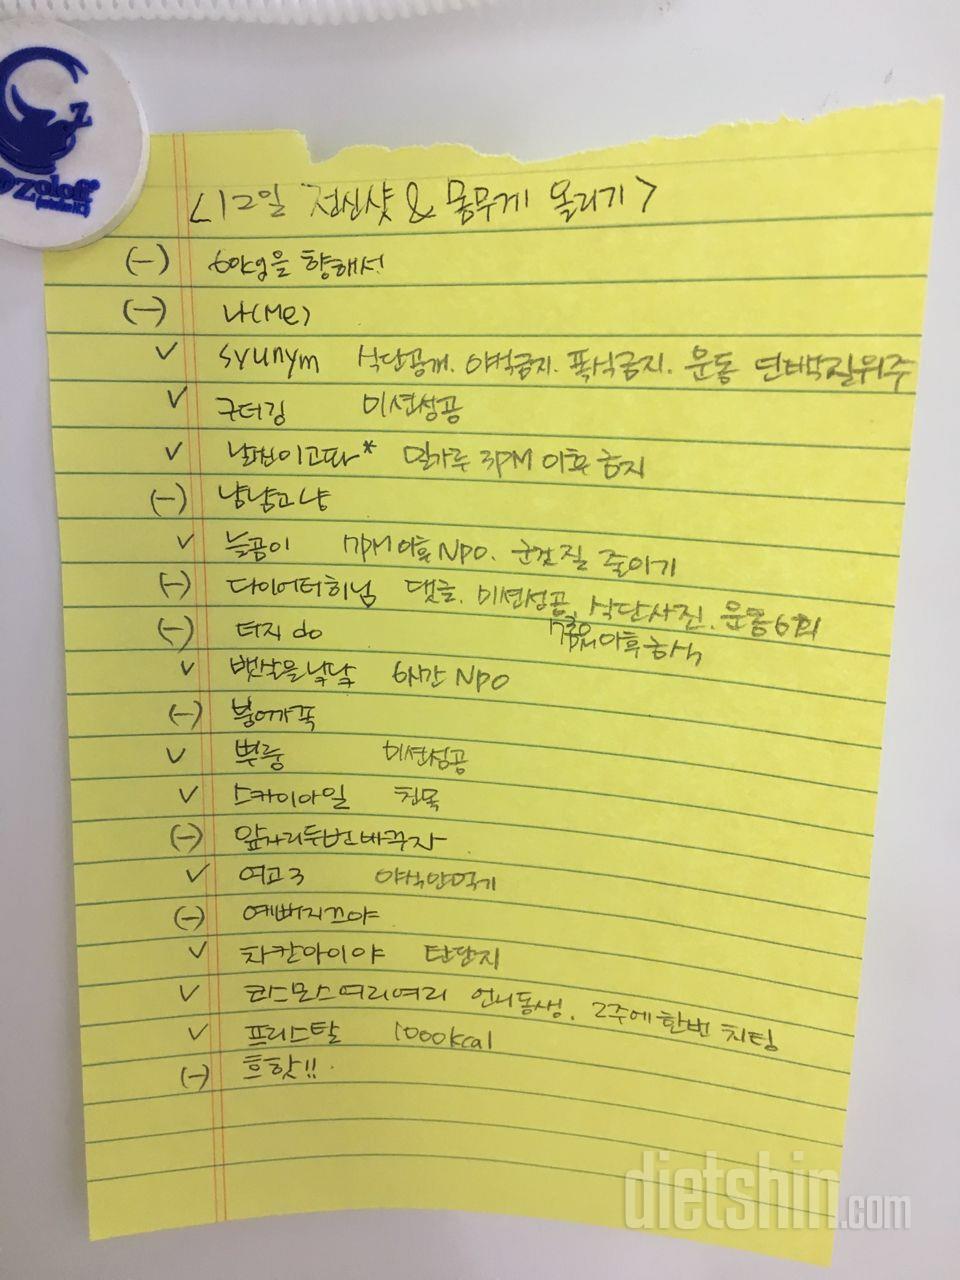 zoloft
<12일 전신샷 & 몸무게 올리기>
(-) 60kg을 향해서
(-) 나(Me)
✓ syunym 식단공개. 야식금지. 폭식금지. 운동 단백질위주
✓ 구더깅 미션성공
✓ 날씬이고파* 밀가루 3PM 이후 금지
(-) 냠냠고냥
✓ 늘곰이 7PM 이후 NPO. 군것질 줄이기
(-) 다이어터히님 댓글. 미션성공. 식단사진. 운동 6회
(-) 터지do 7PM 이후 금식
✓ 뱃살을 냠냠 6시간 NPO
(-) 붕어가족
✓ 뿌룽 미션성공
✓ 스카이아일 친목
(-) 앞자리두번바꾸자
✓ 여고3 야식안먹기
(-) 예뻐지쯔야
✓ 차칸아이야 탄단지
✓ 코스모스여리여리 언니동생. 2주에 한번 치팅
✓ 프리스탈 1000kcal
(-) 흐핫!!
dietshin.com